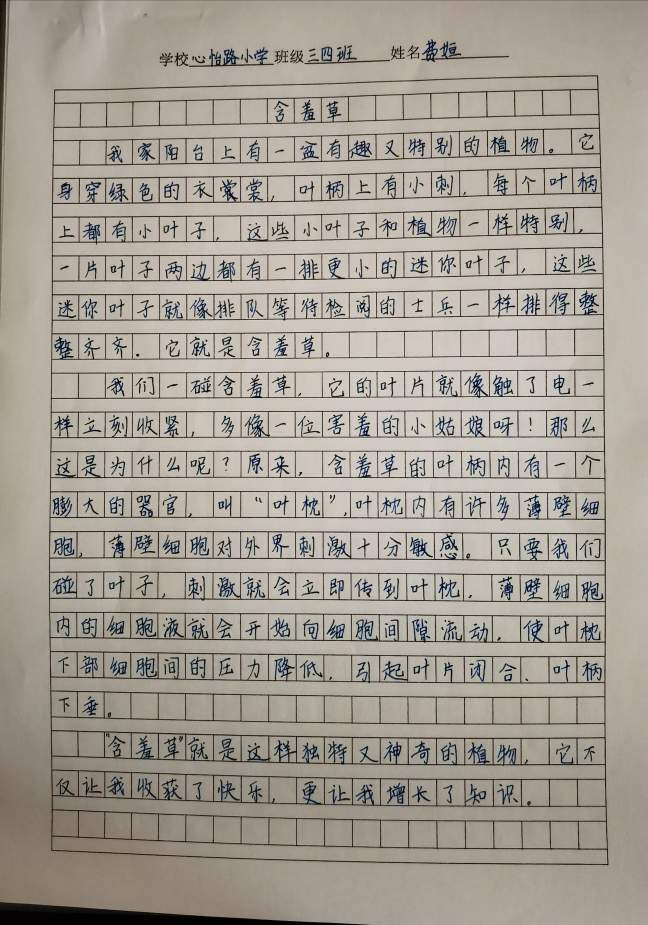 学校心怡路小学班级三四班 姓名费姮
含羞草
我家阳台上有一盆有趣又特别的植物。它
身穿绿色的衣裳裳，叶柄上有小刺，每个叶柄
上都有小叶子，这些小叶子和植物一样特别，
一片叶子两边都有一排更小的迷你叶子，这些
迷你叶子就像排队等待检阅的士兵一样排得整
整齐齐．它就是含羞草。
我们一碰含羞草，它的叶片就像触了电一
样立刻收紧，多像一位害羞的小姑娘呀！那么
这是为什么呢？原来，含羞草的叶柄内有一个
膨大的器官，叫“叶枕”，叶枕内有许多薄壁细
胞，薄壁细胞对外界刺激十分敏感。只要我们
碰了叶子，刺激就会立即传到叶枕，薄壁细胞
内的细胞液就会开始向细胞间隙流动，使叶枕
下部细胞间的压力降低，引起叶片闭合、叶柄
下垂。
“含羞草”就是这样独特又神奇的植物，它不
仅让我收获了快乐，更让我增长了知识。